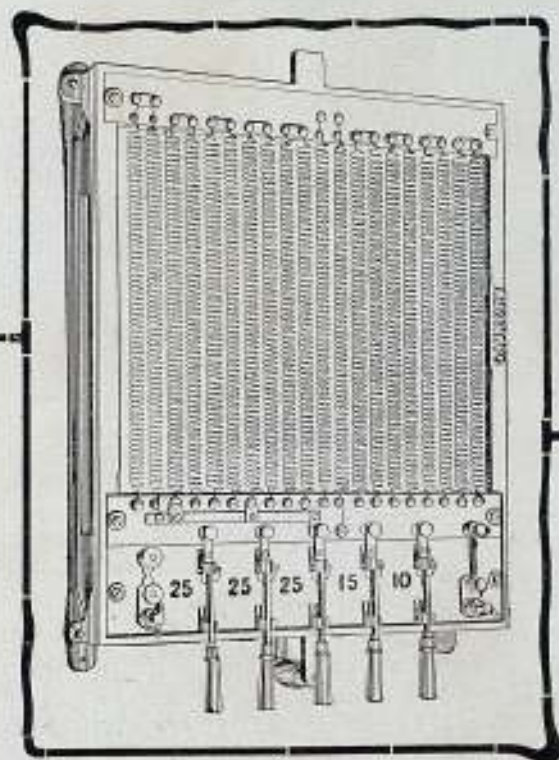 25 25 25 15 10